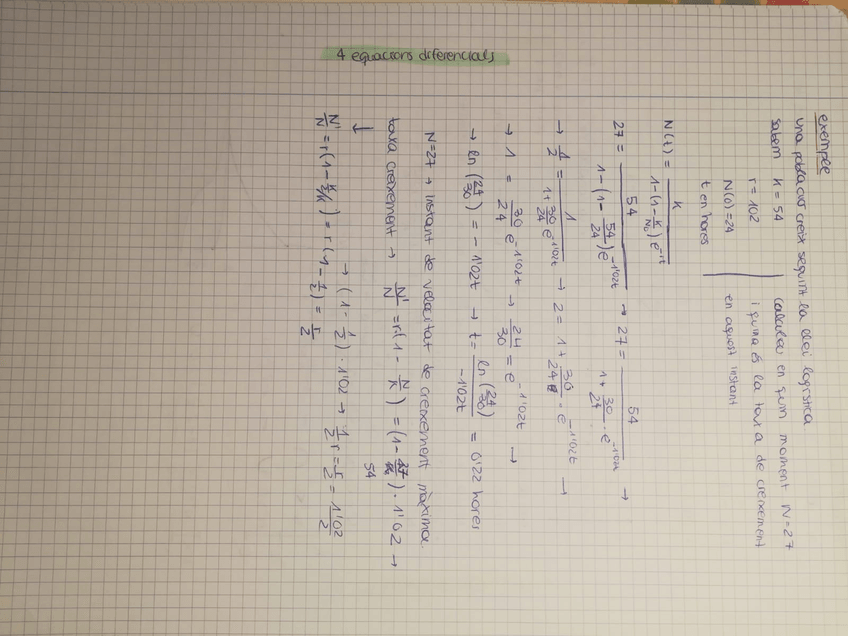 4 equacions diferencials
exemple
una població creix seguint la llei logística
sabem K = 54 calcular en quin moment N=27
r = 102 i quina és la taxa de creixement
N(0)=24 en aquest instant
t en hores
N(t) = K / (1-(1-K/N₀)e^-rt)
27 = 54 / (1-(1-54/24)e^-1'02t) → 27 = 54 / (1+30/24·e^-1'02t) →
→ 1/2 = 1 / (1+30/24 e^-1'02t) → 2 = 1+30/24·e^-1'02t →
→ 1 = 30/24 e^-1'02t → 24/30 = e^-1'02t →
→ ln(24/30) = -1'02t → t = ln(24/30) / -1'02t = 0'22 hores
N=27 → instant de velocitat de creixement màxima.
taxa creixement → N'/N = r·(1-N/K) = (1-27/54)·1'02 →
↓ → (1-1/2)·1'02 → 1/2 r = r/2 = 1'02/2
N'/N = r(1-K/2/K) = r(1-1/2) = r/2